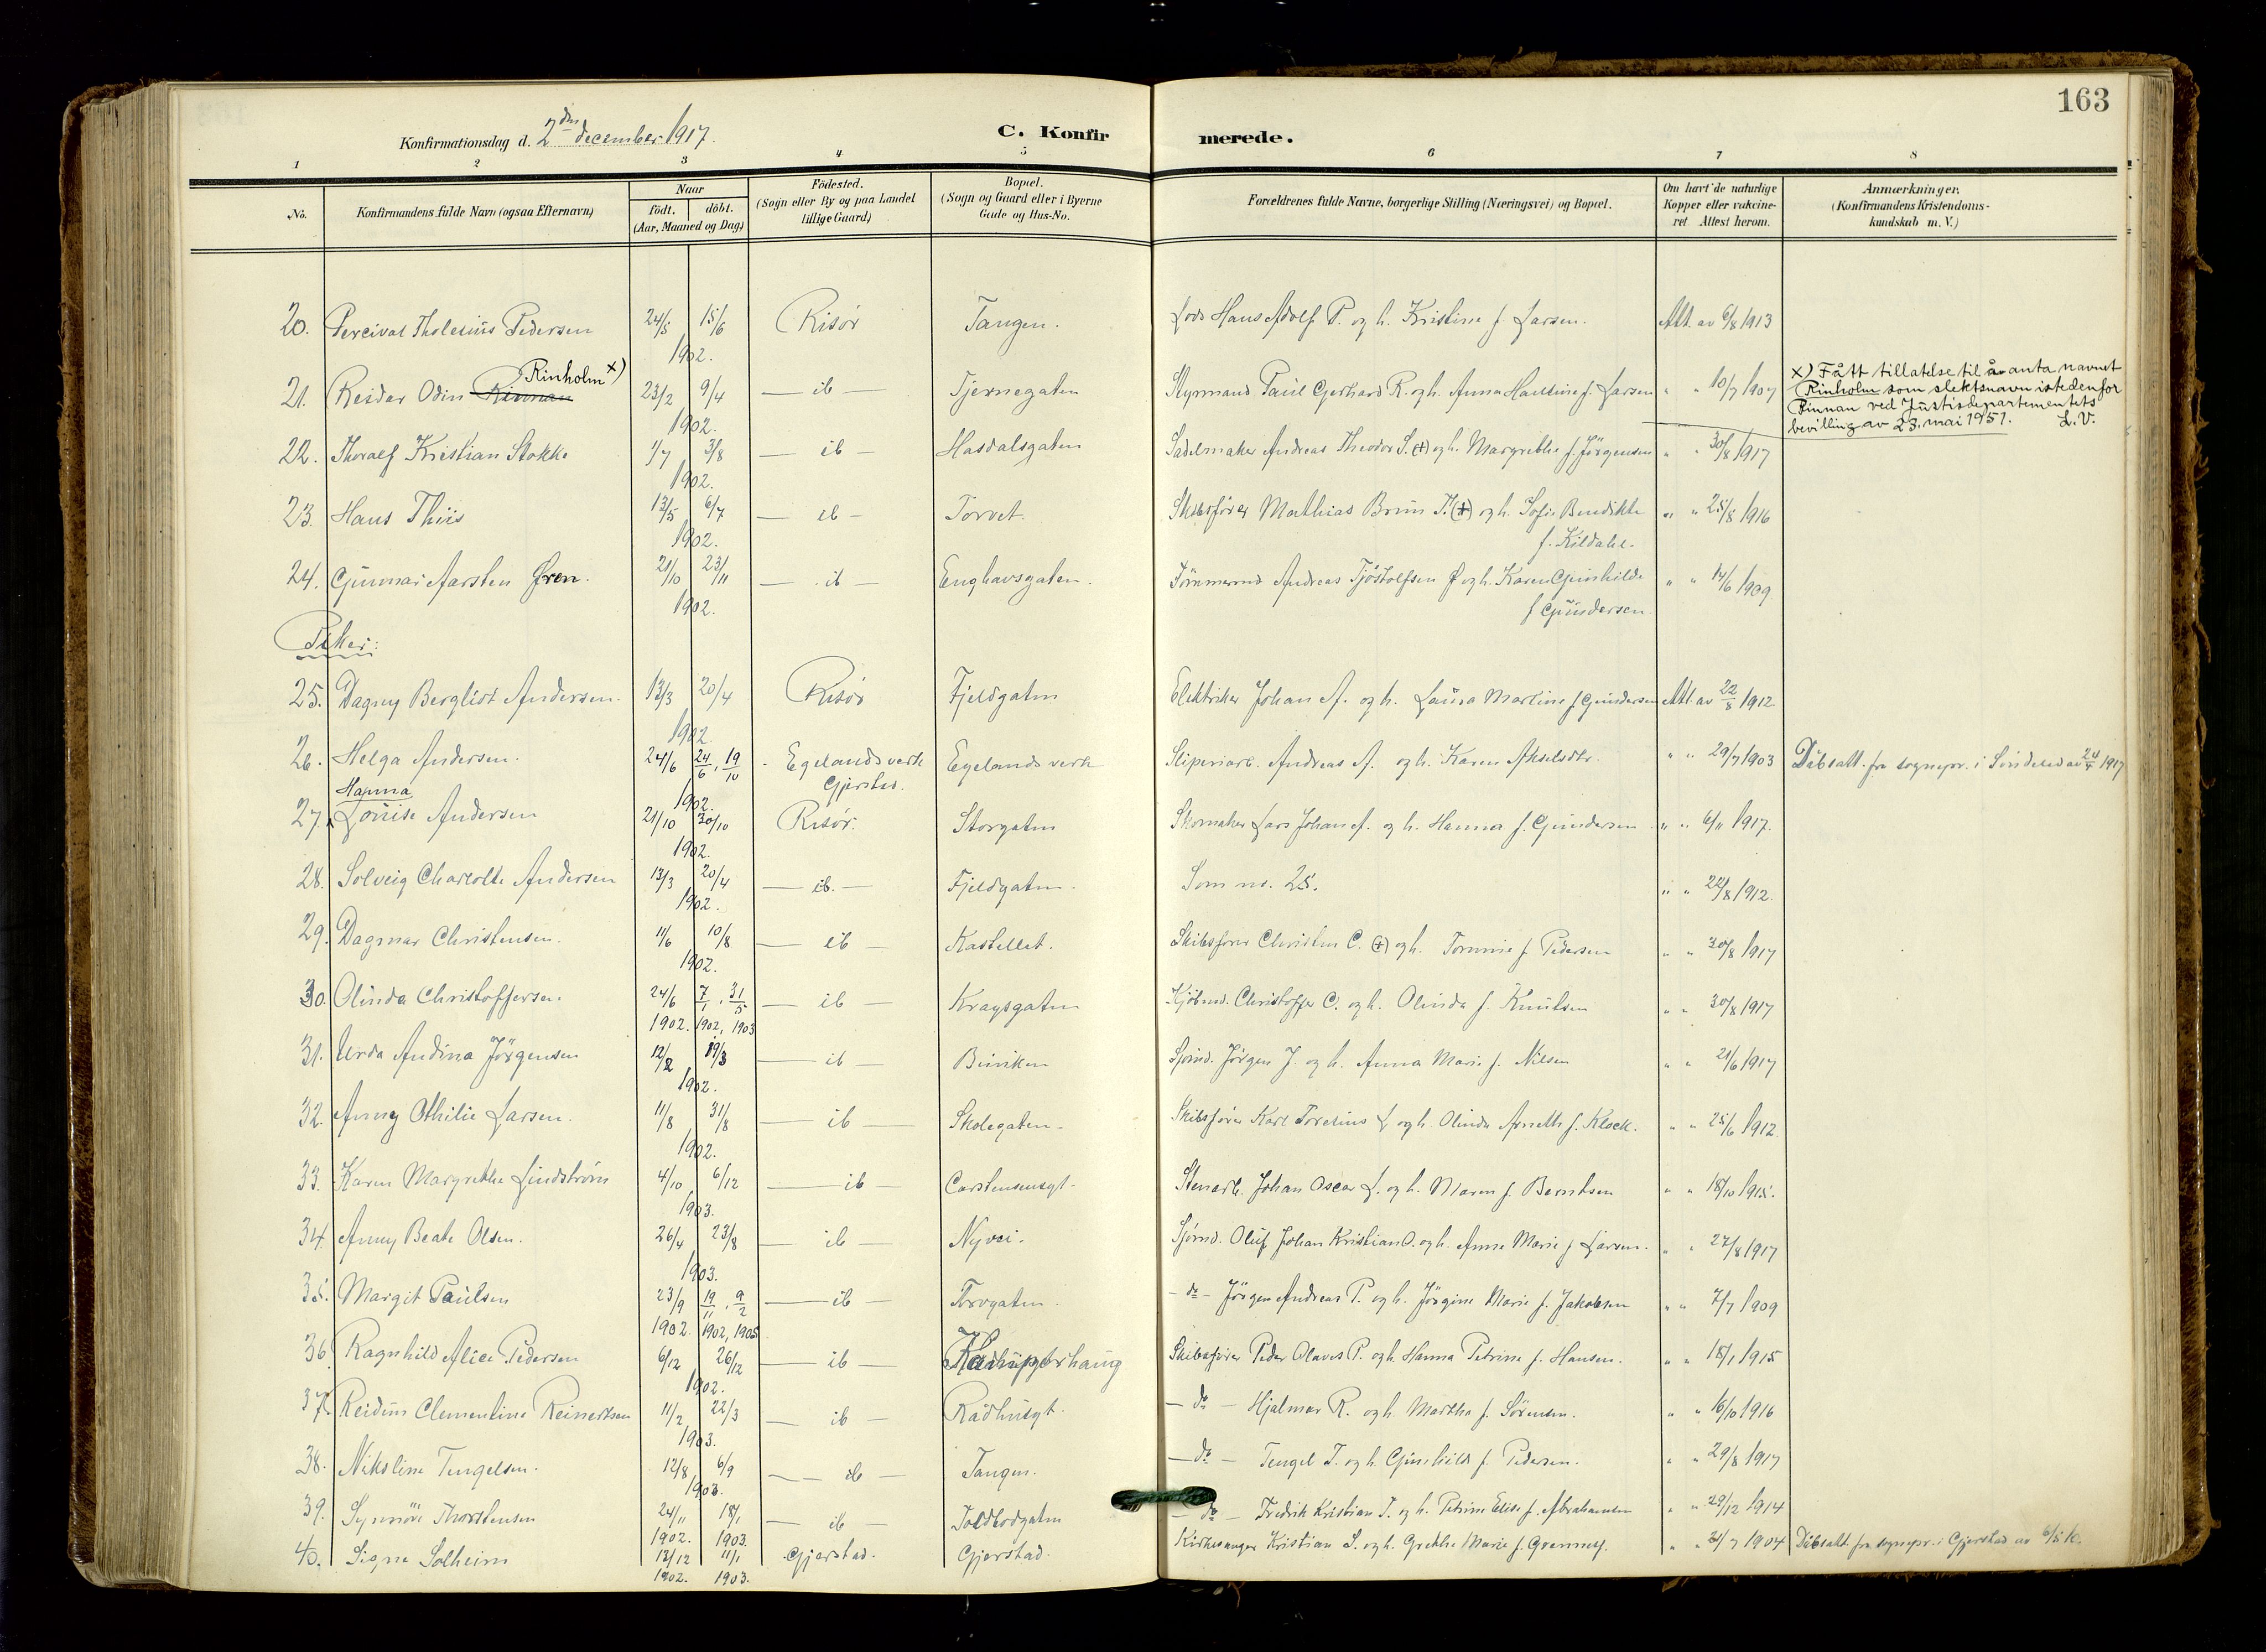 163
Konfirmationsdag d. 2den december 1917.
C. Konfirmerede.
1 2 3 4 5 6 7 8
No.
Konfirmandens fulde Navn (ogsaa Efternavn)
Naar
født. døbt.
(Aar, Maaned og Dag)
Födested.
(Sogn eller By og paa Landet
tillige Gaard)
Bopæl.
(Sogn og Gaard eller i Byerne
Gade og Hus-No.
Forældrenes fulde Navne, borgerlige Stilling (Næringsvei) og Bopæl.
Om havt de naturlige
Kopper eller vakcine-
ret. Attest herom.
Anmærkninger.
(Konfirmandens Kristendoms-
kundskab m. V.)
20. Percival Tholenius Pedersen 24/5 15/6 1902. Risør Tangen. Lods Hans Adolf P. og h. Kristine f. Larsen. Att. av 6/8 1913
21. Reidar Odin Rinnan Rinholm x) 23/2 9/4 1902. — ib — Tjernegaten Styrmand Paul Gerhard R. og h. Anna Hansine f. Larsen " " 10/7 1907
x) Fått tillatelse til å anta navnet
Rinholm som slektsnavn istedenfor
Rinnan ved Justisdepartementets
bevilling av 23. mai 1951. L.V.
22. Thoralf Kristian Stokke 1/7 3/8 1902. — ib — Hasdalsgaten Sadelmaker Andreas Theodor S. (+) og h. Margrethe f. Jørgensen " " 30/8 1917
23. Hans Thiis 13/5 6/7 1902. — ib — Torvet. Skibsfører Mathias Brun T. (+) og h. Sofie Bendikte
f. Kildahl. " " 25/8 1916
24. Gunnar Aarsten Øren. 21/10 23/11 1902. — ib — Enghavsgaten. Tømmermd Andreas Tjøstolfsen Ø og h. Karen Gunhilde
f Gundersen. " " 14/6 1909.
Piker:
25. Dagny Bergliot Andersen. 13/3 20/4 1902. Risør Fjeldgaten Elektriker Johan A. og h. Laura Martine f. Gundersen Att. av 22/8 1912
26. Helga Andersen. 24/6 24/6, 19/10 1902. Egelands verk Gjerstad. Egelands verk Sliperiarb. Andreas A. og h. Karen Akselsdtr. " " 29/7 1903 Dåbsatt. fra sognepr. i Søndeled av 24/4 1917
27. Hanna Louise Andersen 21/10 30/10 1902. Risør. Storgaten Skomaker Lars Johan A. og h. Hanna f. Gundersen " " 6/11 1917.
28. Solveig Charlotte Andersen 13/3 20/4 1902. — ib. — Fjeldgaten. Som no. 25. " " 22/8 1912.
29. Dagmar Christensen. 11/6 10/8 1902. — ib — Kastellet. Skibsfører Christen C. (+) og h. Tomine f. Pedersen " " 30/8 1917
30. Olinda Christoffersen. 24/6 7/1, 31/5 1902. 1902, 1903 — ib — Kragsgaten Kjøbmd. Christoffer C. og h. Olinda f. Knutsen " " 30/8 1917
31. Urda Andina Jørgensen 12/2 19/3 1902. — ib — Buviken Sjømd. Jørgen J. og h. Anna Marie f. Nilsen " " 21/6 1917
32. Anny Othilie Larsen. 11/8 31/8 1902. — ib — Skolegaten. Skibsfører Karl Torelius L og h. Olinda Arneth f. Klock. " " 25/6 1912.
33. Karen Margrethe Lindstrøm 4/10 6/12 1903. — ib — Carstensensgt. Stenarb. Johan Oscar L. og h. Maren f. Berntsen " " 18/10 1915.
34. Anny Beate Olsen. 26/4 23/8 1903. — ib — Nyvei. Sjømd. Oluf Johan Kristian O. og h. Anne Marie f. Larsen. " " 27/8 1917
35. Margit Paulsen 23/9 19/11, 9/2 1902. 1902, 1905 — ib — Torvgaten. — do — Jørgen Andreas P. og h. Jørgine Marie f. Jakobsen " " 7/7 1909
36. Ragnhild Alice Pedersen 6/12 26/12 1902. — ib — Skibsfører Peder Olaves P. og h. Hanna Petrine f. Hansen. " " 18/1 1915
37. Reidun Clementine Reinertsen 11/2 22/3 1903. — ib — Rådhusgt. — do — Hjalmar R. og h. Martha f. Sørensen. " " 16/10 1916
38. Nikoline Tengelsen. 12/8 6/9 1903. — ib — Tangen. — do — Tengel T. og h. Gunhild f. Pedersen. " " 29/8 1917
39. Synnøve Thorstensen 24/11 18/1 1902. 1903. — ib — Toldbodgaten — do — Fredrik Kristian T. og h. Petrine Elise f. Abrahamsen " " 29/12 1914
40. Signe Solheim 12/12 11/1 1902. 1903. Gjerstad. Gjerstad. Kirkesanger Kristian S. og h. Grethe Marie f. " " 31/7 1904 Dåbsatt. fra sognepr. i Gjerstad av 6/5 16.